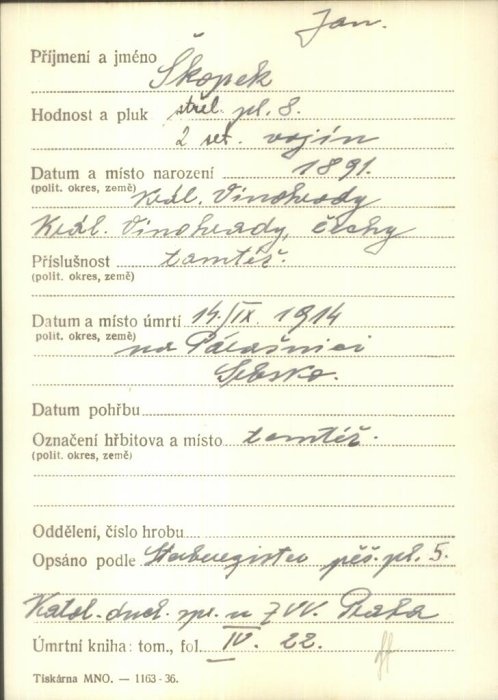 Jan.
Příjmení a jméno Škopek
Hodnost a pluk střel. pl. 8.
2 set. vojín
Datum a místo narození 1891.
(polit. okres, země) Král. Vinohrady
Král. Vinohrady, Čechy
Příslušnost tamtéž.
(polit. okres, země)
Datum a místo úmrtí 14./IX. 1914
polit. okres, země) na Parašnici
Srbsko.
Datum pohřbu
Označení hřbitova a místo tamtéž.
(polit. okres, země)
Oddělení, číslo hrobu
Opsáno podle Sterberegister pěš. pl. 5.
Katol. duch. spr. u ZVV. Praha
Úmrtní kniha: tom., fol. IV. 22.
Tiskárna MNO. — 1163-36.